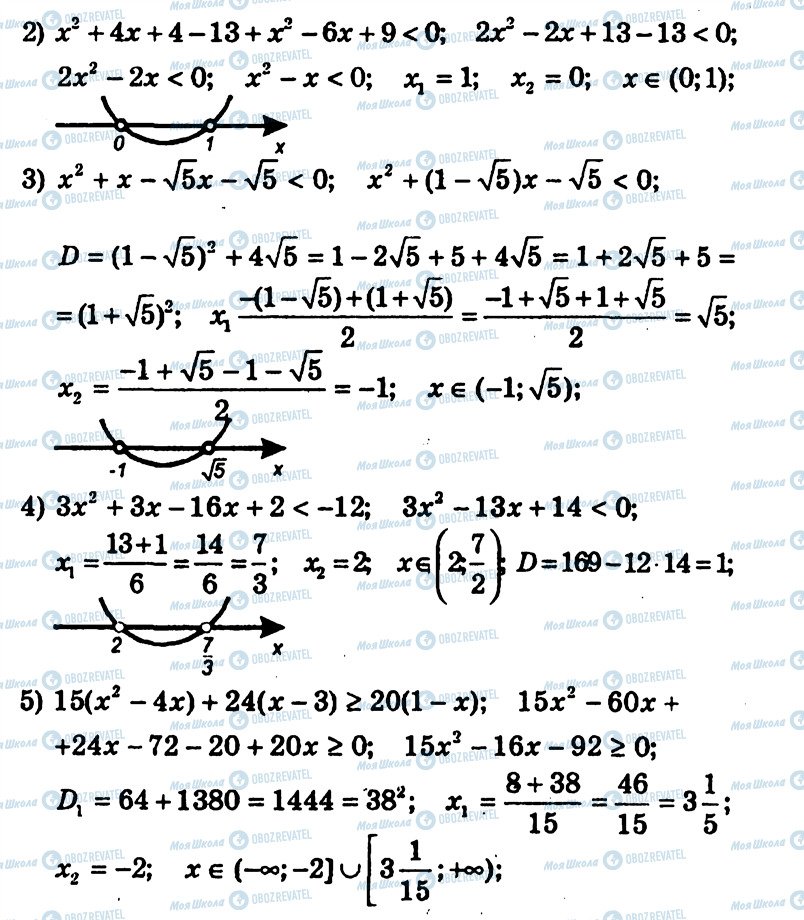 2) x² + 4x + 4 − 13 + x² − 6x + 9 < 0;   2x² − 2x + 13 − 13 < 0;
2x² − 2x < 0;   x² − x < 0;   x₁ = 1;   x₂ = 0;   x ∈ (0; 1);
0   1   x
3) x² + x − √5x − √5 < 0;   x² + (1 − √5)x − √5 < 0;
D = (1 − √5)² + 4√5 = 1 − 2√5 + 5 + 4√5 = 1 + 2√5 + 5 =
= (1 + √5)²;   x₁ (−(1 − √5) + (1 + √5))/2 = (−1 + √5 + 1 + √5)/2 = √5;
x₂ = (−1 + √5 − 1 − √5)/2 = −1;   x ∈ (−1; √5);
-1   √5   x
4) 3x² + 3x − 16x + 2 < −12;   3x² − 13x + 14 < 0;
x₁ = (13 + 1)/6 = 14/6 = 7/3;   x₂ = 2;   x ∈ (2; 7/2);   D = 169 − 12 · 14 = 1;
2   7/3   x
5) 15(x² − 4x) + 24(x − 3) ≥ 20(1 − x);   15x² − 60x +
+24x − 72 − 20 + 20x ≥ 0;   15x² − 16x − 92 ≥ 0;
D₁ = 64 + 1380 = 1444 = 38²;   x₁ = (8 + 38)/15 = 46/15 = 3 1/5;
x₂ = −2;   x ∈ (−∞; −2] ∪ [3 1/15; +∞);
Моя Школа OBOZREVATEL